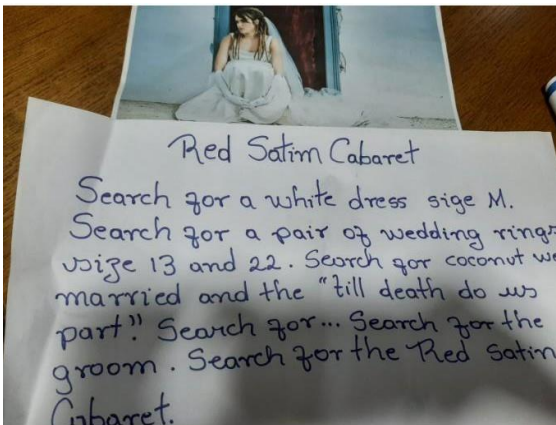 Red Satin Cabaret
Search for a white dress size M.
Search for a pair of wedding rings
size 13 and 22. Search for coconut we
married and the "till death do us
part". Search for... Search for the
groom. Search for the Red Satin
Cabaret.